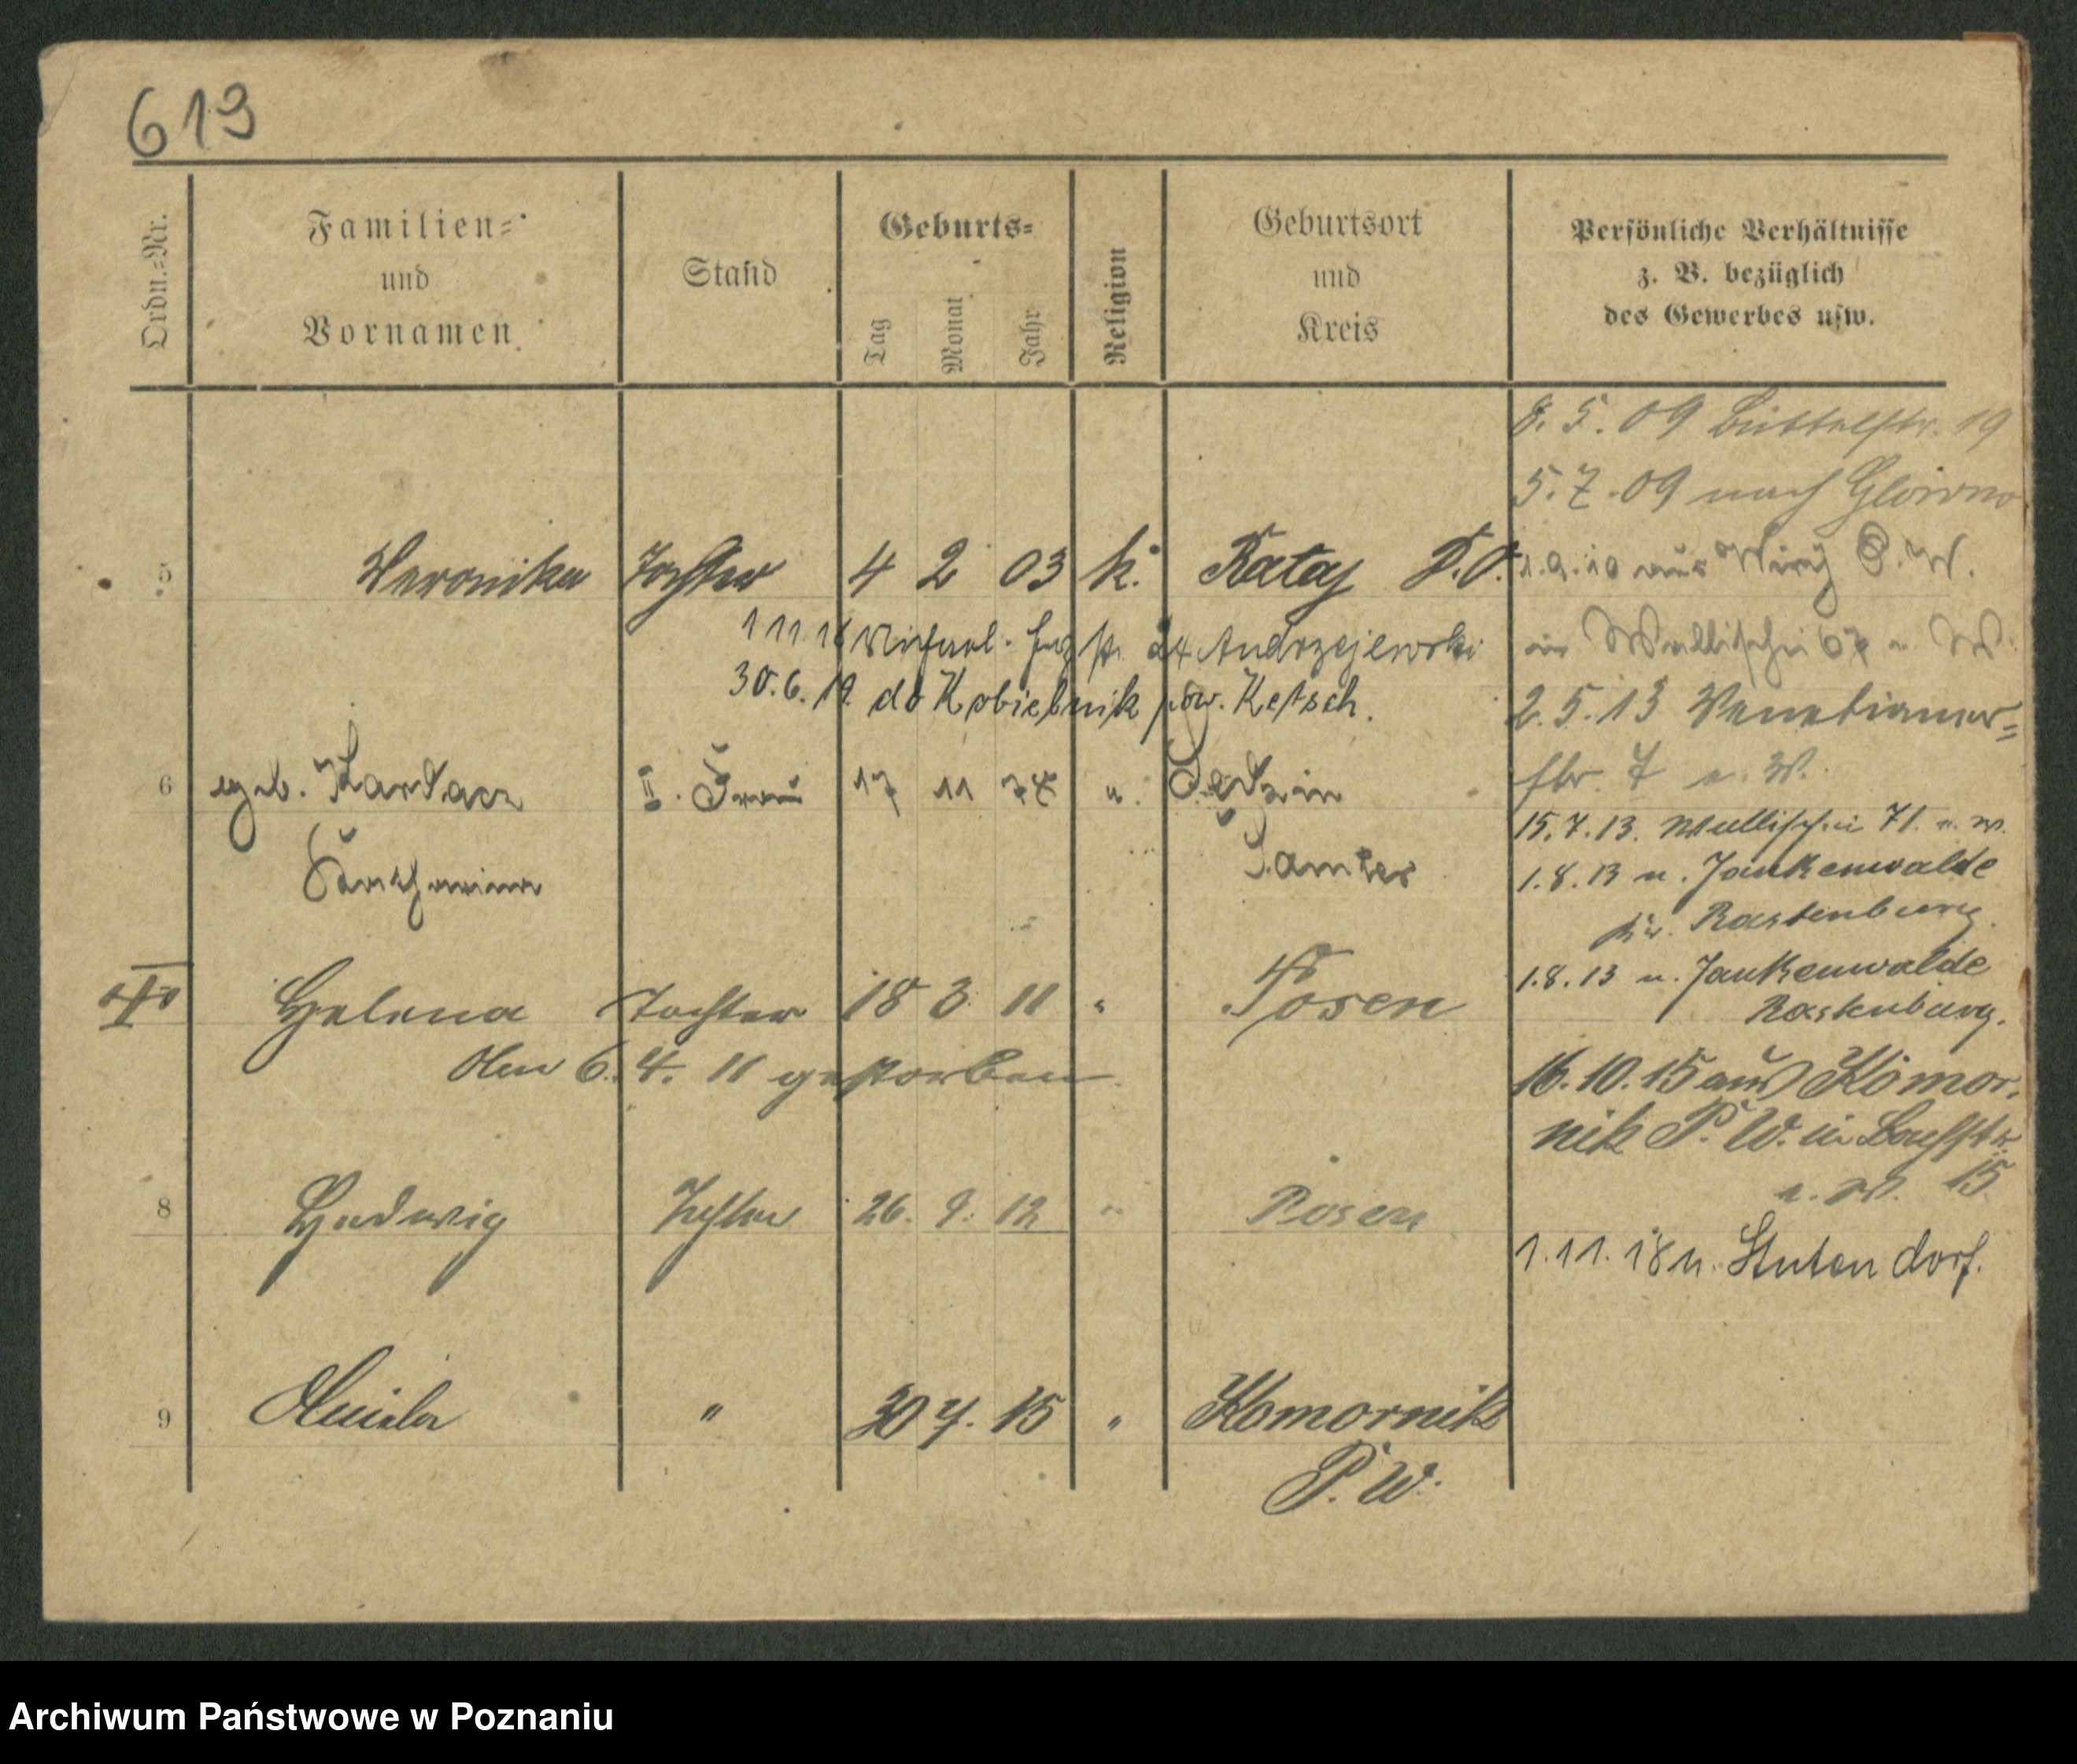 613
Ordn.-Nr.
Familien-
und
Vornamen
Stand
Geburts-
Tag
Monat
Jahr
Religion
Geburtsort
und
Kreis
Persönliche Verhältnisse
z. B. bezüglich
des Gewerbes usw.
8. 5. 09 Büttelstr. 19
5. 7. 09 nach Glowno
5 Veronika Tochter 4 2 03 k. Rataj P.O.
1.9.10 aus Wiry P.W.
in Wallischei 67 W.
1 11 18 24 Andrzejewski
30. 6. 19. do Kobielnik pow. Ketsch.
2. 5. 13 Venetianer-
str. 7 W.
6 geb. II. Frau 17 11 78 ".
Samter
15. 7. 13. Wallischei 71. W.
1. 8. 13 n. Jankenwalde
Kr. Rastenburg.
Helena Tochter 18 3 11 " Posen
1. 8. 13 n. Jankenwalde
Rastenburg.
den 6. 4. 11 gestorben.
16. 10. 15 aus Komor-
nik P. W. in 15
8 Hedwig Tochter 26. 9. 12 " Posen
1. 11. 18 n. Stutendorf.
9 " 30 7. 15 " Komornik
P. W.
Archiwum Państwowe w Poznaniu